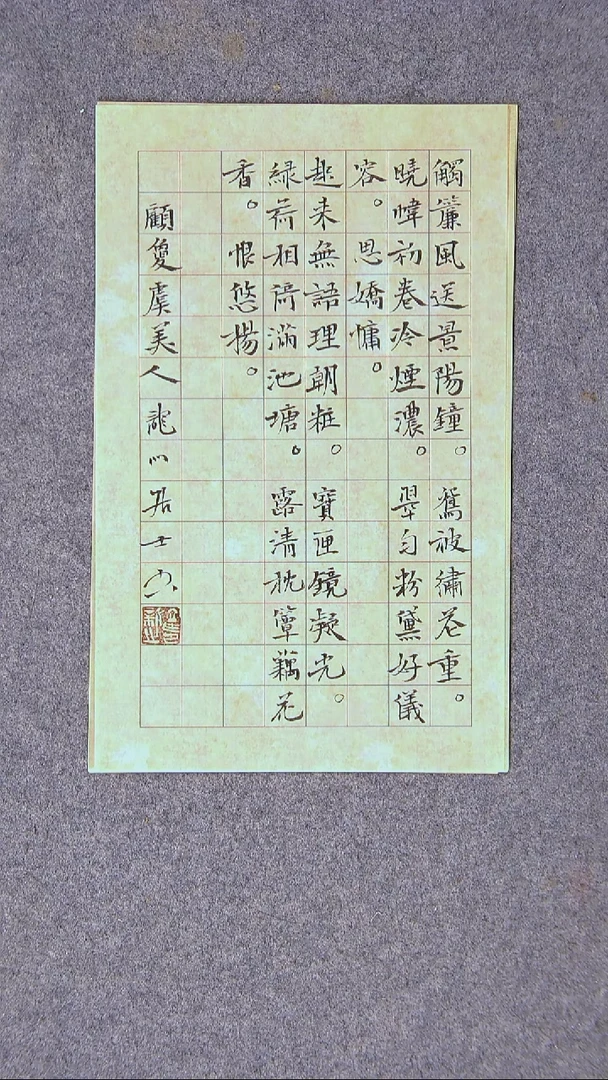 觸簾風送景陽鐘。鴛被繡花重。
曉幃初卷冷煙濃。翠勻粉黛好儀
容。思嬌慵。
起來無語理朝粧。寶匣鏡凝光。
綠荷相倚滿池塘。露清枕簟藕花
香。恨悠揚。
顧夐虞美人 居士